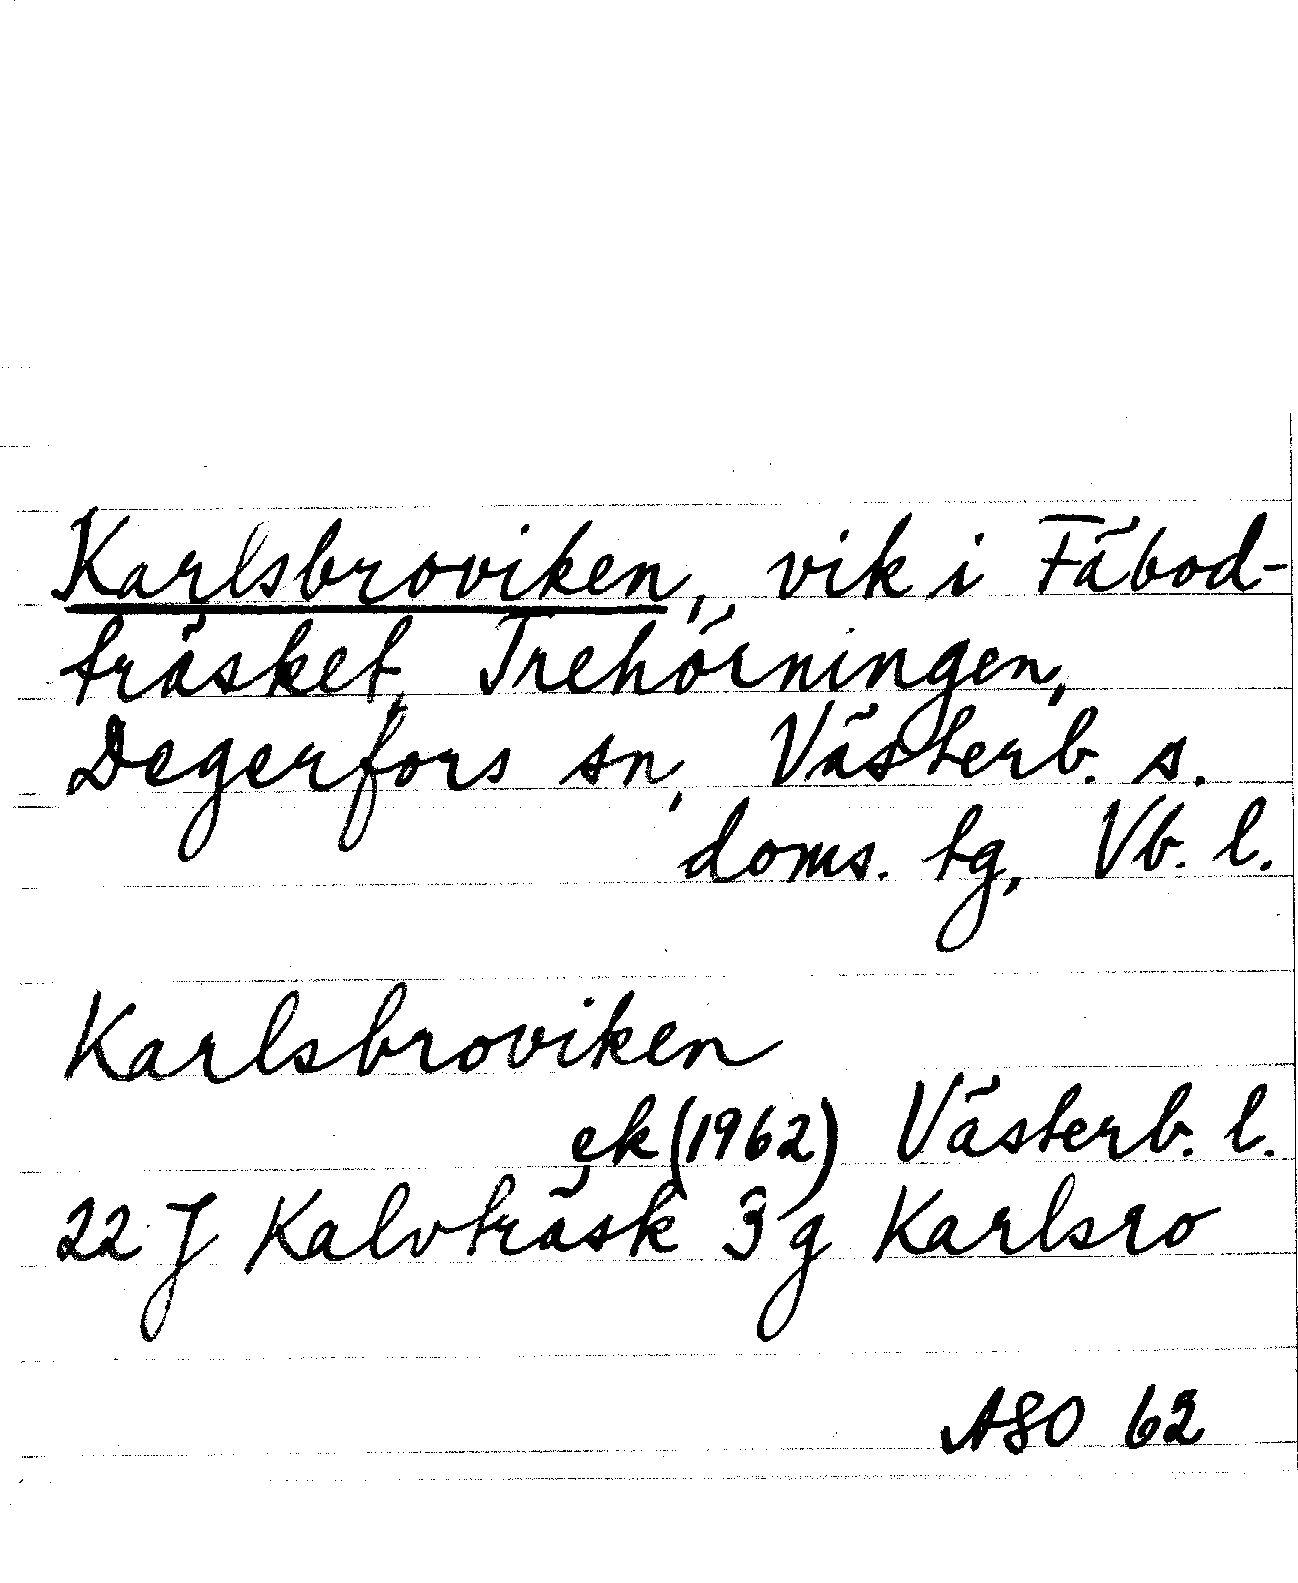 Karlsbroviken, vik i Fäbod-
träsket, Trehörningen,
Degerfors sn, Västerb. s.
doms. tg, Vb. l.
Karlsbroviken
ek (1962) Västerb. l.
22 J Kalvträsk 3 g Karlsro
ASO 62